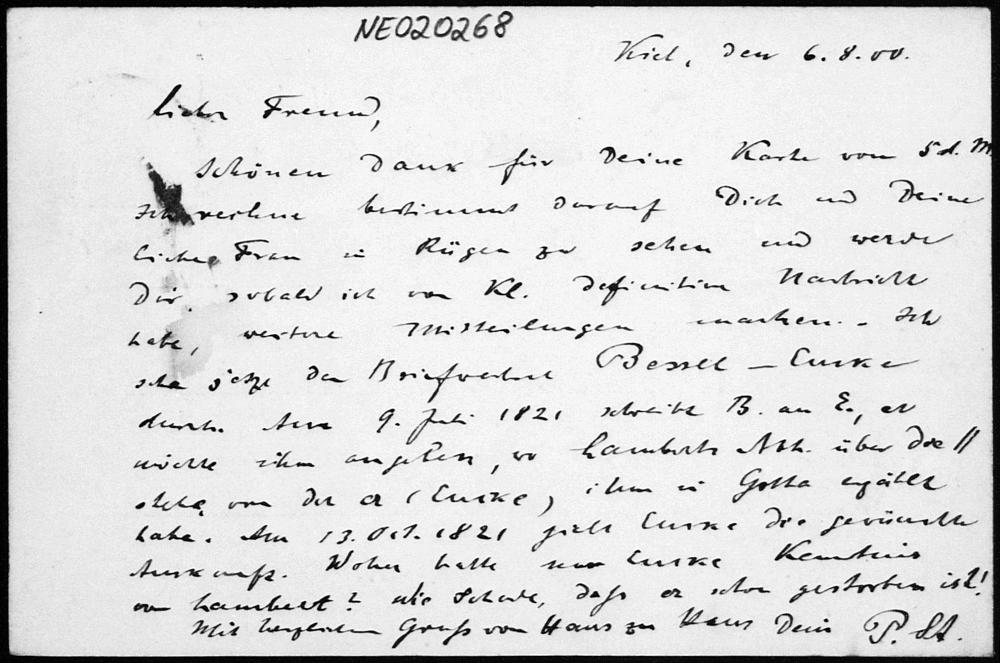 NE020268
Kiel, den 6.8.00.
Lieber Freund,
Schönen Dank für Deine Karte vom 5 d. M.
Ich rechne bestimmt darauf Dich und Deine
liebe Frau in Rügen zu sehen und werde
Dir, sobald ich von Kl. definitive Nachricht
habe, weitere Mitteilungen machen. – Ich
sehe jetzt den Briefwechsel Bessel – Encke
durch. Am 9. Juli 1821 schreibt B. an E., er
möchte ihm angeben, wo Lamberts Abh. über die //
stehe, von der er (Encke) ihm in Gotha erzählt
habe. Am 13. Oct. 1821 giebt Encke die gewünschte
Auskunft. Woher hatte nun Encke Kenntnis
von Lambert? Wie schade, daß er schon gestorben ist!
Mit herzlichem Gruß von Haus zu Haus Dein P. St.